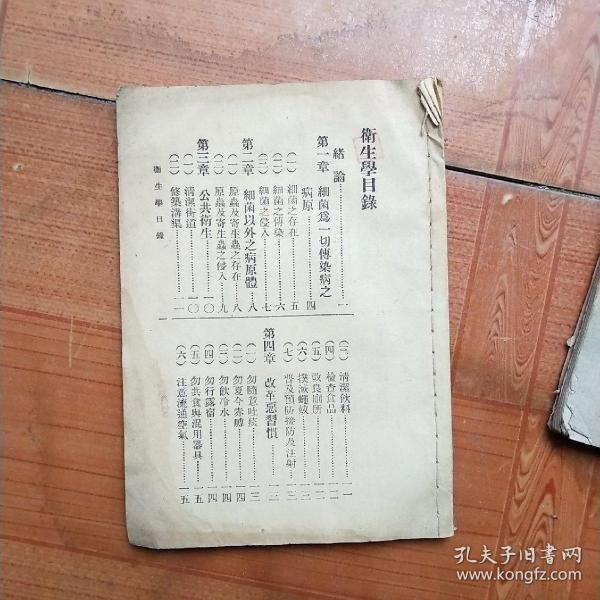 衛生學目錄
緒論…………一
第一章 細菌爲一切傳染病之
病原…………四
(一) 細菌之存在…………五
(二) 細菌之傳染…………六
(三) 細菌之侵入…………七
第二章 細菌以外之病原體…………八
(一) 原蟲及寄生蟲之存在…………八
(二) 原蟲及寄生蟲之侵入…………九
第三章 公共衛生…………一〇
(一) 清潔街道…………一〇
(二) 修築溝渠…………一一
(三) 清潔飲料…………一一
(四) 檢查食品…………一二
(五) 改良廁所…………一二
(六) 撲滅蠅蚊…………一二
(七) 普及預防接防及注射…………一三
第四章 改革惡習慣…………一三
(一) 勿隨意吐痰…………一三
(二) 勿夏令赤膊…………一四
(三) 勿飲冷水…………一四
(四) 勿行露宿…………一四
(五) 勿共食與混用器具…………一五
(六) 注意流通空氣…………一五
衛生學目錄
一
孔夫子旧书网
www.kongfz.com